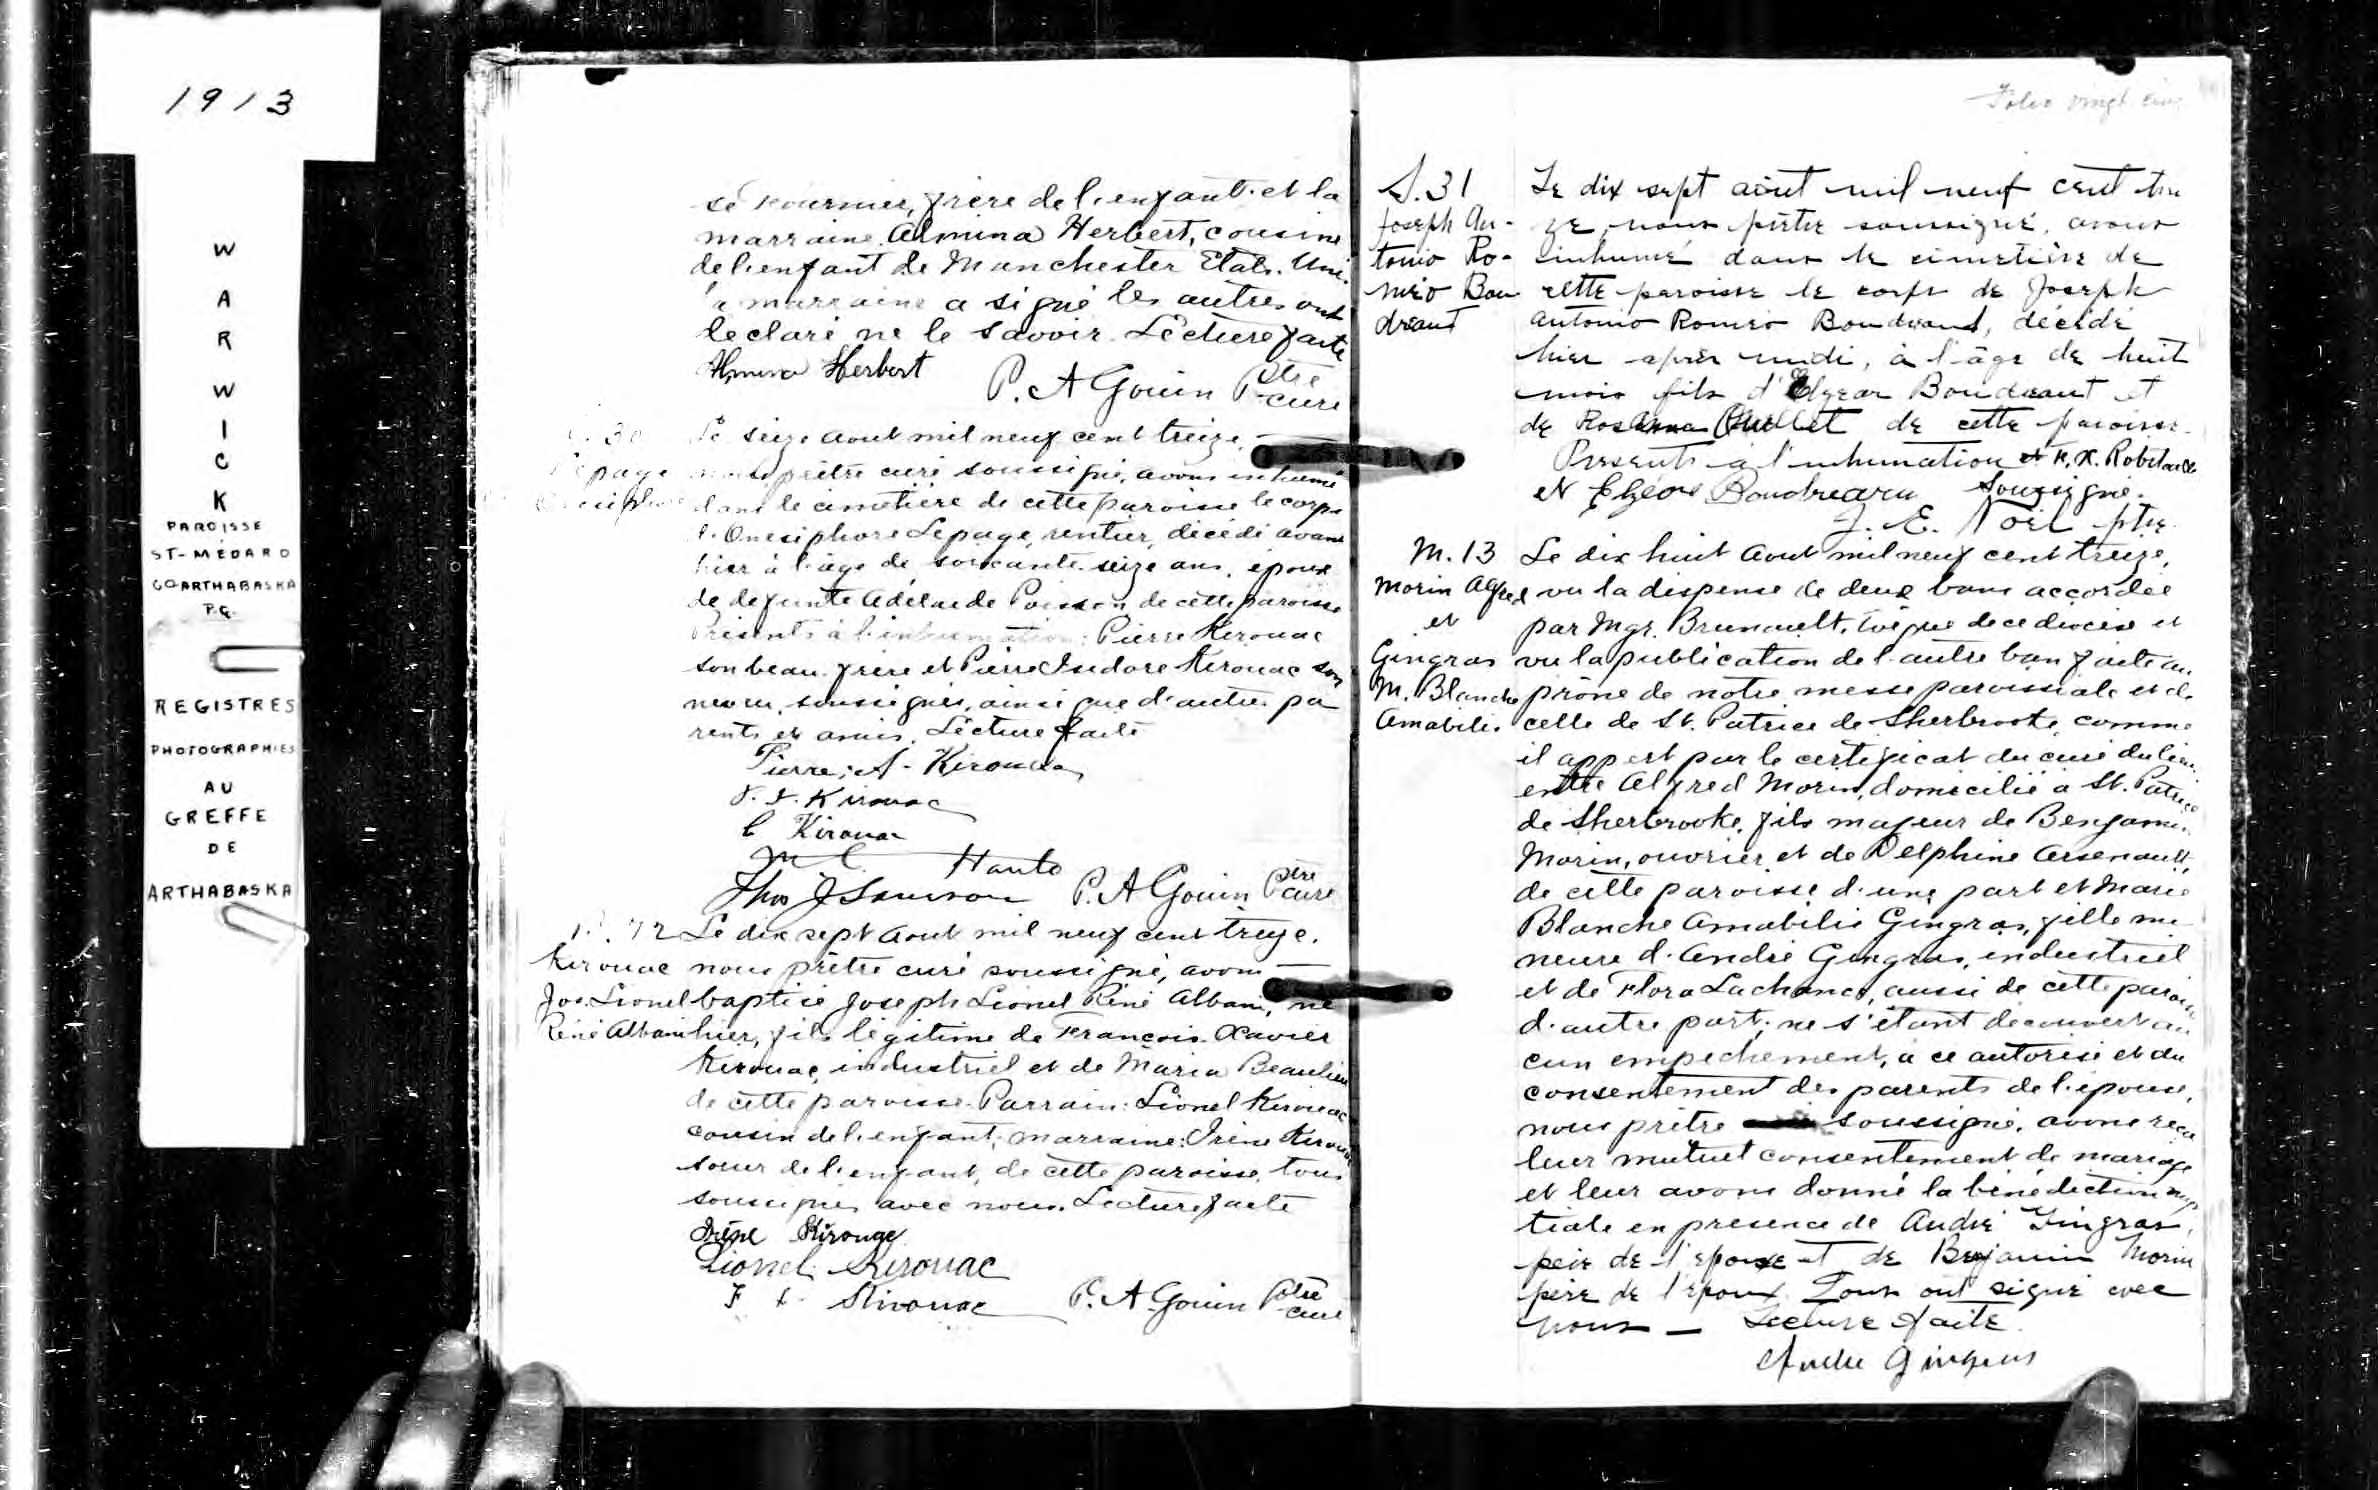 1913
WARWICK
PAROISSE
ST-MÉDARD
CO-ARTHABASKA
P.Q.
REGISTRES
PHOTOGRAPHIES
AU
GREFFE
DE
ARTHABASKA
sé Fournier, frère de l'enfant et la
marraine Almina Herbert, cousine
de l'enfant de Manchester Etats-Unis
la marraine a signé les autres ont
declaré ne le savoir. Lecture faite
Almina Herbert
P. A Gouin Ptre
curé
S. 30
Lepage
Onesiphore
Le seize aout mil neuf cent treize,
nous prêtre curé soussigné, avons inhumé
dans le cimetière de cette paroisse le corps
d'Onesiphore Lepage, rentier, décédé avant
hier à l'âge de soixante-seize ans, époux
de defunte Adelaide Poisson de cette paroisse
Présents à l'inhumation: Pierre Kerouac
son beau-frère et Pierre Isidore Kerouac son
neveu, soussignés, ainsi que d'autres pa
rents et amis. Lecture faite
Pierre A. Kirouac
Kirouac
C Kirouac
P. A Gouin Ptre
curé
B. 72
Kerouac
Jos. Lionel
René Alban
Le dix sept aout mil neuf cent treize.
nous prêtre curé soussigné, avons
baptisé Joseph Lionel René Alban, né
hier, fils légitime de François-Xavier
Kerouac, industriel et de Maria Beaulieu
de cette paroisse. Parrain: Lionel Kerouac
cousin de l'enfant; marraine: Irène Kerouac
soeur de l'enfant, de cette paroisse, tous
soussignés avec nous. Lecture faite
Irène Kirouac
Lionel Kerouac
F X Kirouac
P. A Gouin Ptre
curé
Folio vingt cinq
S. 31
Joseph An-
tonio Ro-
méo Bou
dreault
Le dix sept août mil neuf cent trei
ze, nous prêtre soussigné, avons
inhumé dans le cimetière de
cette paroisse le corps de Joseph
Antonio Roméo Boudreault, décédé
hier après midi, à l'âge de huit
mois fils d'Elzear Boudreault et
de Rosanna Ouellet de cette paroisse.
Présents à l'inhumation F. X. Robitaille
et Elzear Boudreault soussigné.
J. E. Noël ptre
M. 13
Morin Alfred
et
Gingras
M. Blanche
Amabilis
Le dix huit Aout mil neuf cent treize,
vu la dispense de deux bans accordée
par Mgr. Brunault, évêque de ce diocèse et
vu la publication de l'autre ban faite au
prône de notre messe paroissiale et de
celle de St. Patrice de Sherbrooke, comme
il appert par le certificat du curé du lieu,
entre Alfred Morin, domicilié a St. Patrice
de Sherbrooke, fils majeur de Benjamin
Morin, ouvrier et de Delphine Arsenault,
de cette paroisse d'une part et Marie
Blanche Amabilis Gingras, fille mi
neure d'André Gingras, industriel
et de Flora Lachance, aussi de cette paroisse
d'autre part; ne s'étant découvert au
cun empechement, à ce autorisé et du
consentement des parents de l'épouse,
nous prêtre soussigné, avons reçu
leur mutuel consentement de mariage
et leur avons donné la bénédiction nup
tiale en présence de André Gingras,
père de l'épouse et de Benjamin Morin
père de l'époux Tous ont signé avec
nous — Lecture faite.
André Gingras